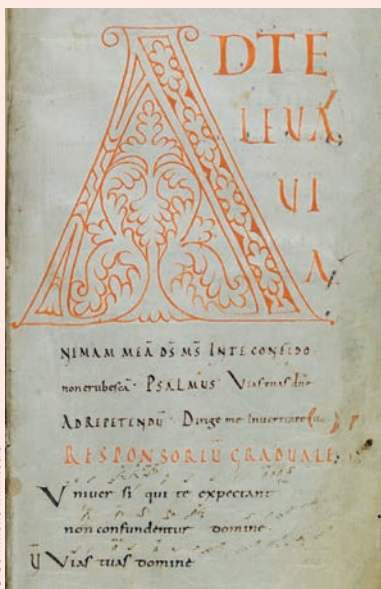 ADTE
LEUA
UI
A
NIMAM MEĀ D̄S M̄S INTE CONFIDO
non erubescā· PSALMUS Vias tuas dn̄e
AD REPETENDŪ· Dirige me inueritate
RESPONSORIŪ GRADUALE.
Vniuersi qui te expectant
non confundentur domine·
V̄ Vias tuas domine